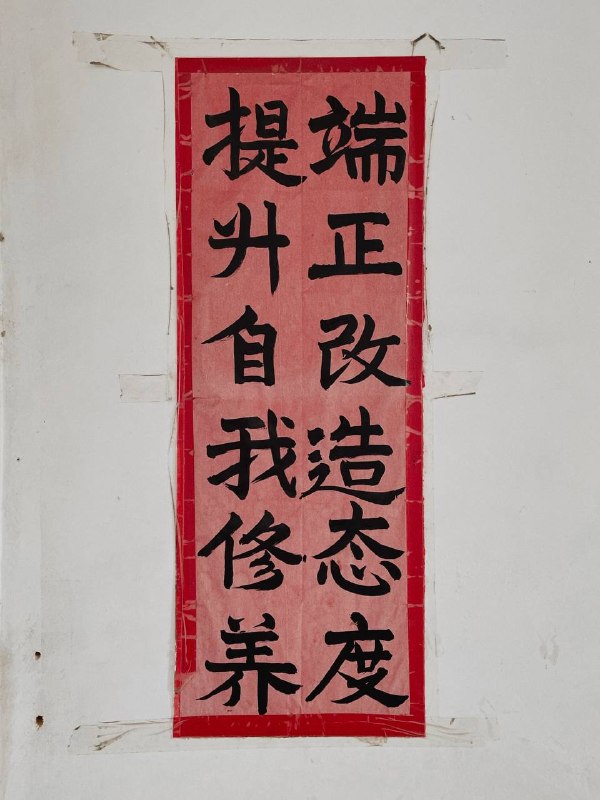 端正改造态度
提升自我修养